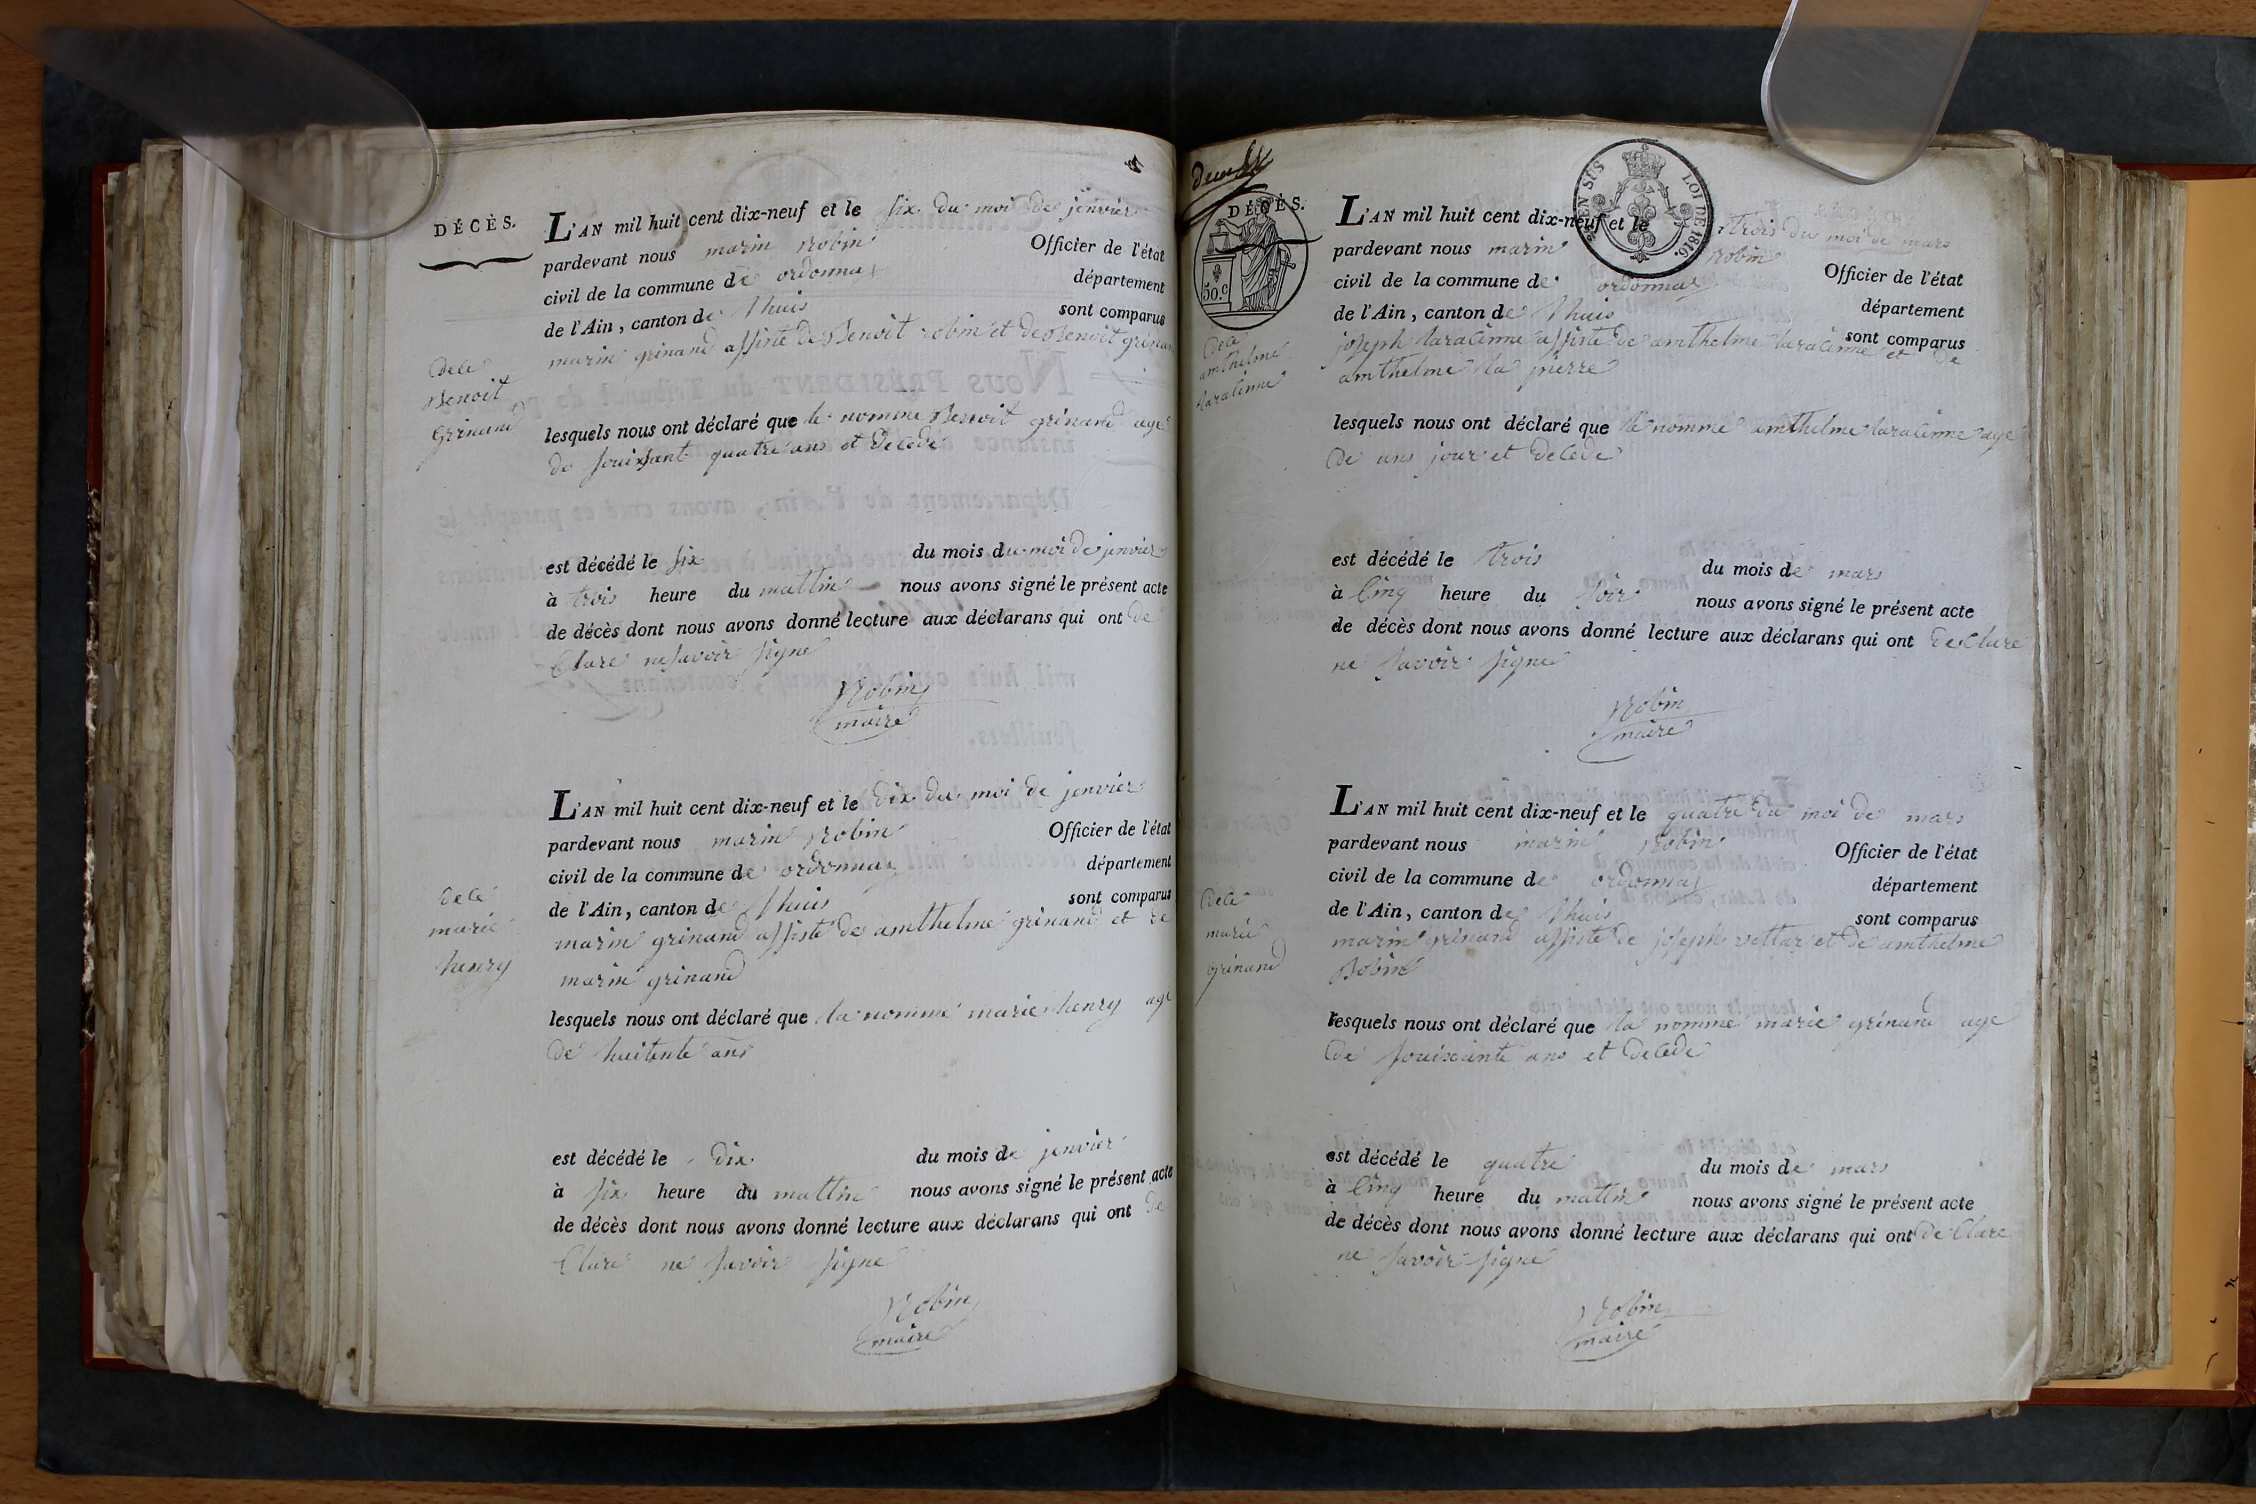 DÉCÈS.
L'AN mil huit cent dix-neuf et le six du moi de jenvier
pardevant nous marin Robin Officier de l'état
civil de la commune de ordonnas département
de l'Ain, canton de lhuis sont comparus
marin grinand assisté de Benoit robin et de Benoit grinan
Benoit
Grinand
lesquels nous ont déclaré que le nomme Benoit grinand age
de souixsant quatre ans et decede
est décédé le six du mois du moi de jenvier
à trois heure du mattin nous avons signé le présent acte
de décès dont nous avons donné lecture aux déclarans qui ont de
Clare ne savoir signe
Robin
maire
L'AN mil huit cent dix-neuf et le dix du moi de jenvier
pardevant nous marin Robin Officier de l'état
civil de la commune de ordonnas département
de l'Ain, canton de lhuis sont comparus
marin grinand assisté de amthelme grinand et de
marin grinand
marie
henry
lesquels nous ont déclaré que la nomme marie henry age
de huitente ans
est décédé le dix du mois de jenvier
à six heure du mattin nous avons signé le présent acte
de décès dont nous avons donné lecture aux déclarans qui ont de
Clare ne savoir signe
Robin
maire
DÉCÈS.
50.c
EN SUS LOI DE 1816.
L'AN mil huit cent dix-neuf et le trois du moi de mars
pardevant nous marin Robin Officier de l'état
civil de la commune de ordonnas département
de l'Ain, canton de lhuis sont comparus
joseph laracinne assisté de amthelme laracinne et de
amthelme la pierre
amthelme
laracinne
lesquels nous ont déclaré que le nomme amthelme laracinne age
de uns jour et decede
est décédé le trois du mois de mars
à Cinq heure du soir nous avons signé le présent acte
de décès dont nous avons donné lecture aux déclarans qui ont de Clare
ne savoir signe
Robin
maire
L'AN mil huit cent dix-neuf et le quatre du moi de mars
pardevant nous marin Robin Officier de l'état
civil de la commune de ordonnas département
de l'Ain, canton de lhuis sont comparus
marin grinand assisté de joseph vettar et de amthelme
Robin
marie
Grinand
lesquels nous ont déclaré que la nomme marie grinand age
de souixante ans et decede
est décédé le quatre du mois de mars
à Cinq heure du mattin nous avons signé le présent acte
de décès dont nous avons donné lecture aux déclarans qui ont de Clare
ne savoir signe
Robin
maire